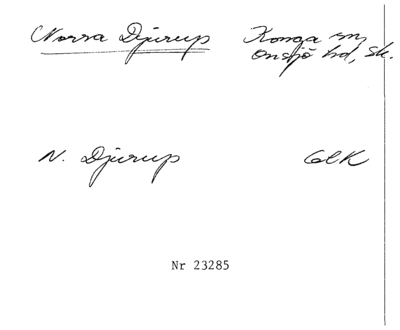 Norra Djurup Konga sn,
Onsjö hd, Sk.
N. Djurup GEK
Nr 23285